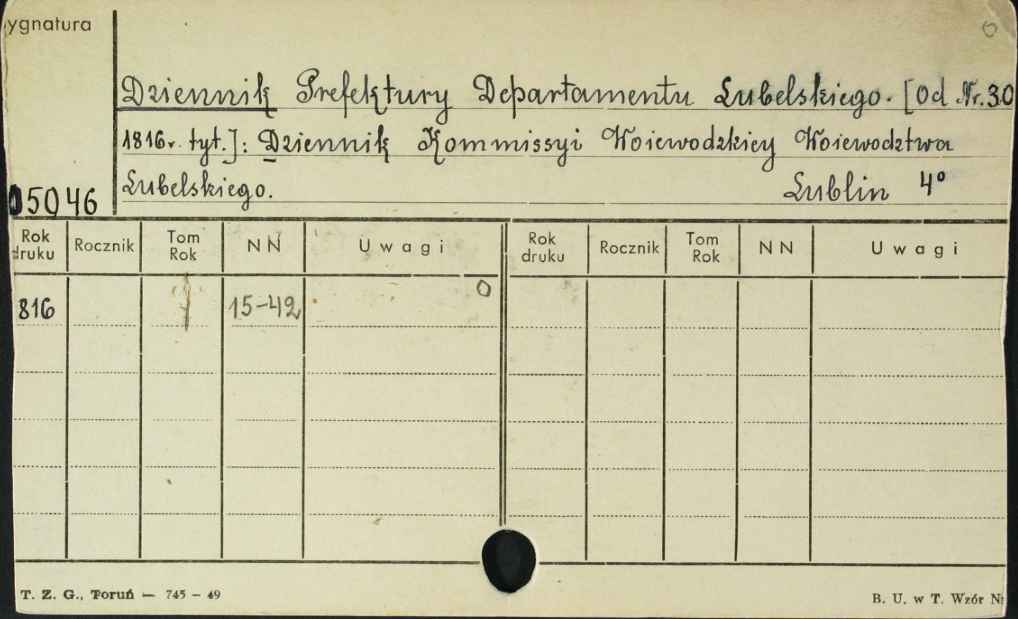 ygnatura
Dziennik Prefektury Departamentu Lubelskiego. [Od Nr. 30
1816r. tyt.]: Dziennik Kommissyi Woiewodzkiey Woiewodztwa
Lubelskiego. Lublin 4°
05046
Rok druku Rocznik Tom Rok NN Uwagi Rok druku Rocznik Tom Rok NN Uwagi
816 15-42 0
T. Z. G., Toruń — 745 - 49 B. U. w T. Wzór Nr